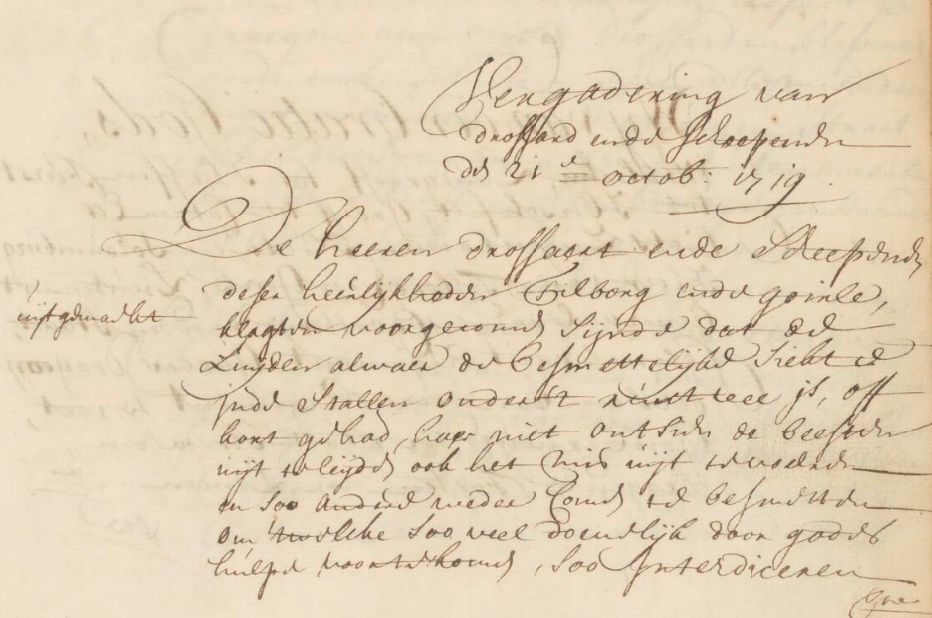 Vergadering van
drossard ende scheepenen
den 21e octob: 1719.
De heeren drossaart ende Scheepenen
deser heerlijkheeden Tilborg ende goirle,
uijtgemaeckt
klagten voorgecomen sijnde dat de
Luijden alwaer de besmettelijke Siekte
inde Stallen onder't rintvee is, off
kort gehad, haer niet ontsien de beesten
uijt te leijden ook het mis uijt te voeren
en soo andere weder comen te besmetten
om 'twelcke soo veel doenelijk door godes
hulpe voor te komen, soo Interdiceren